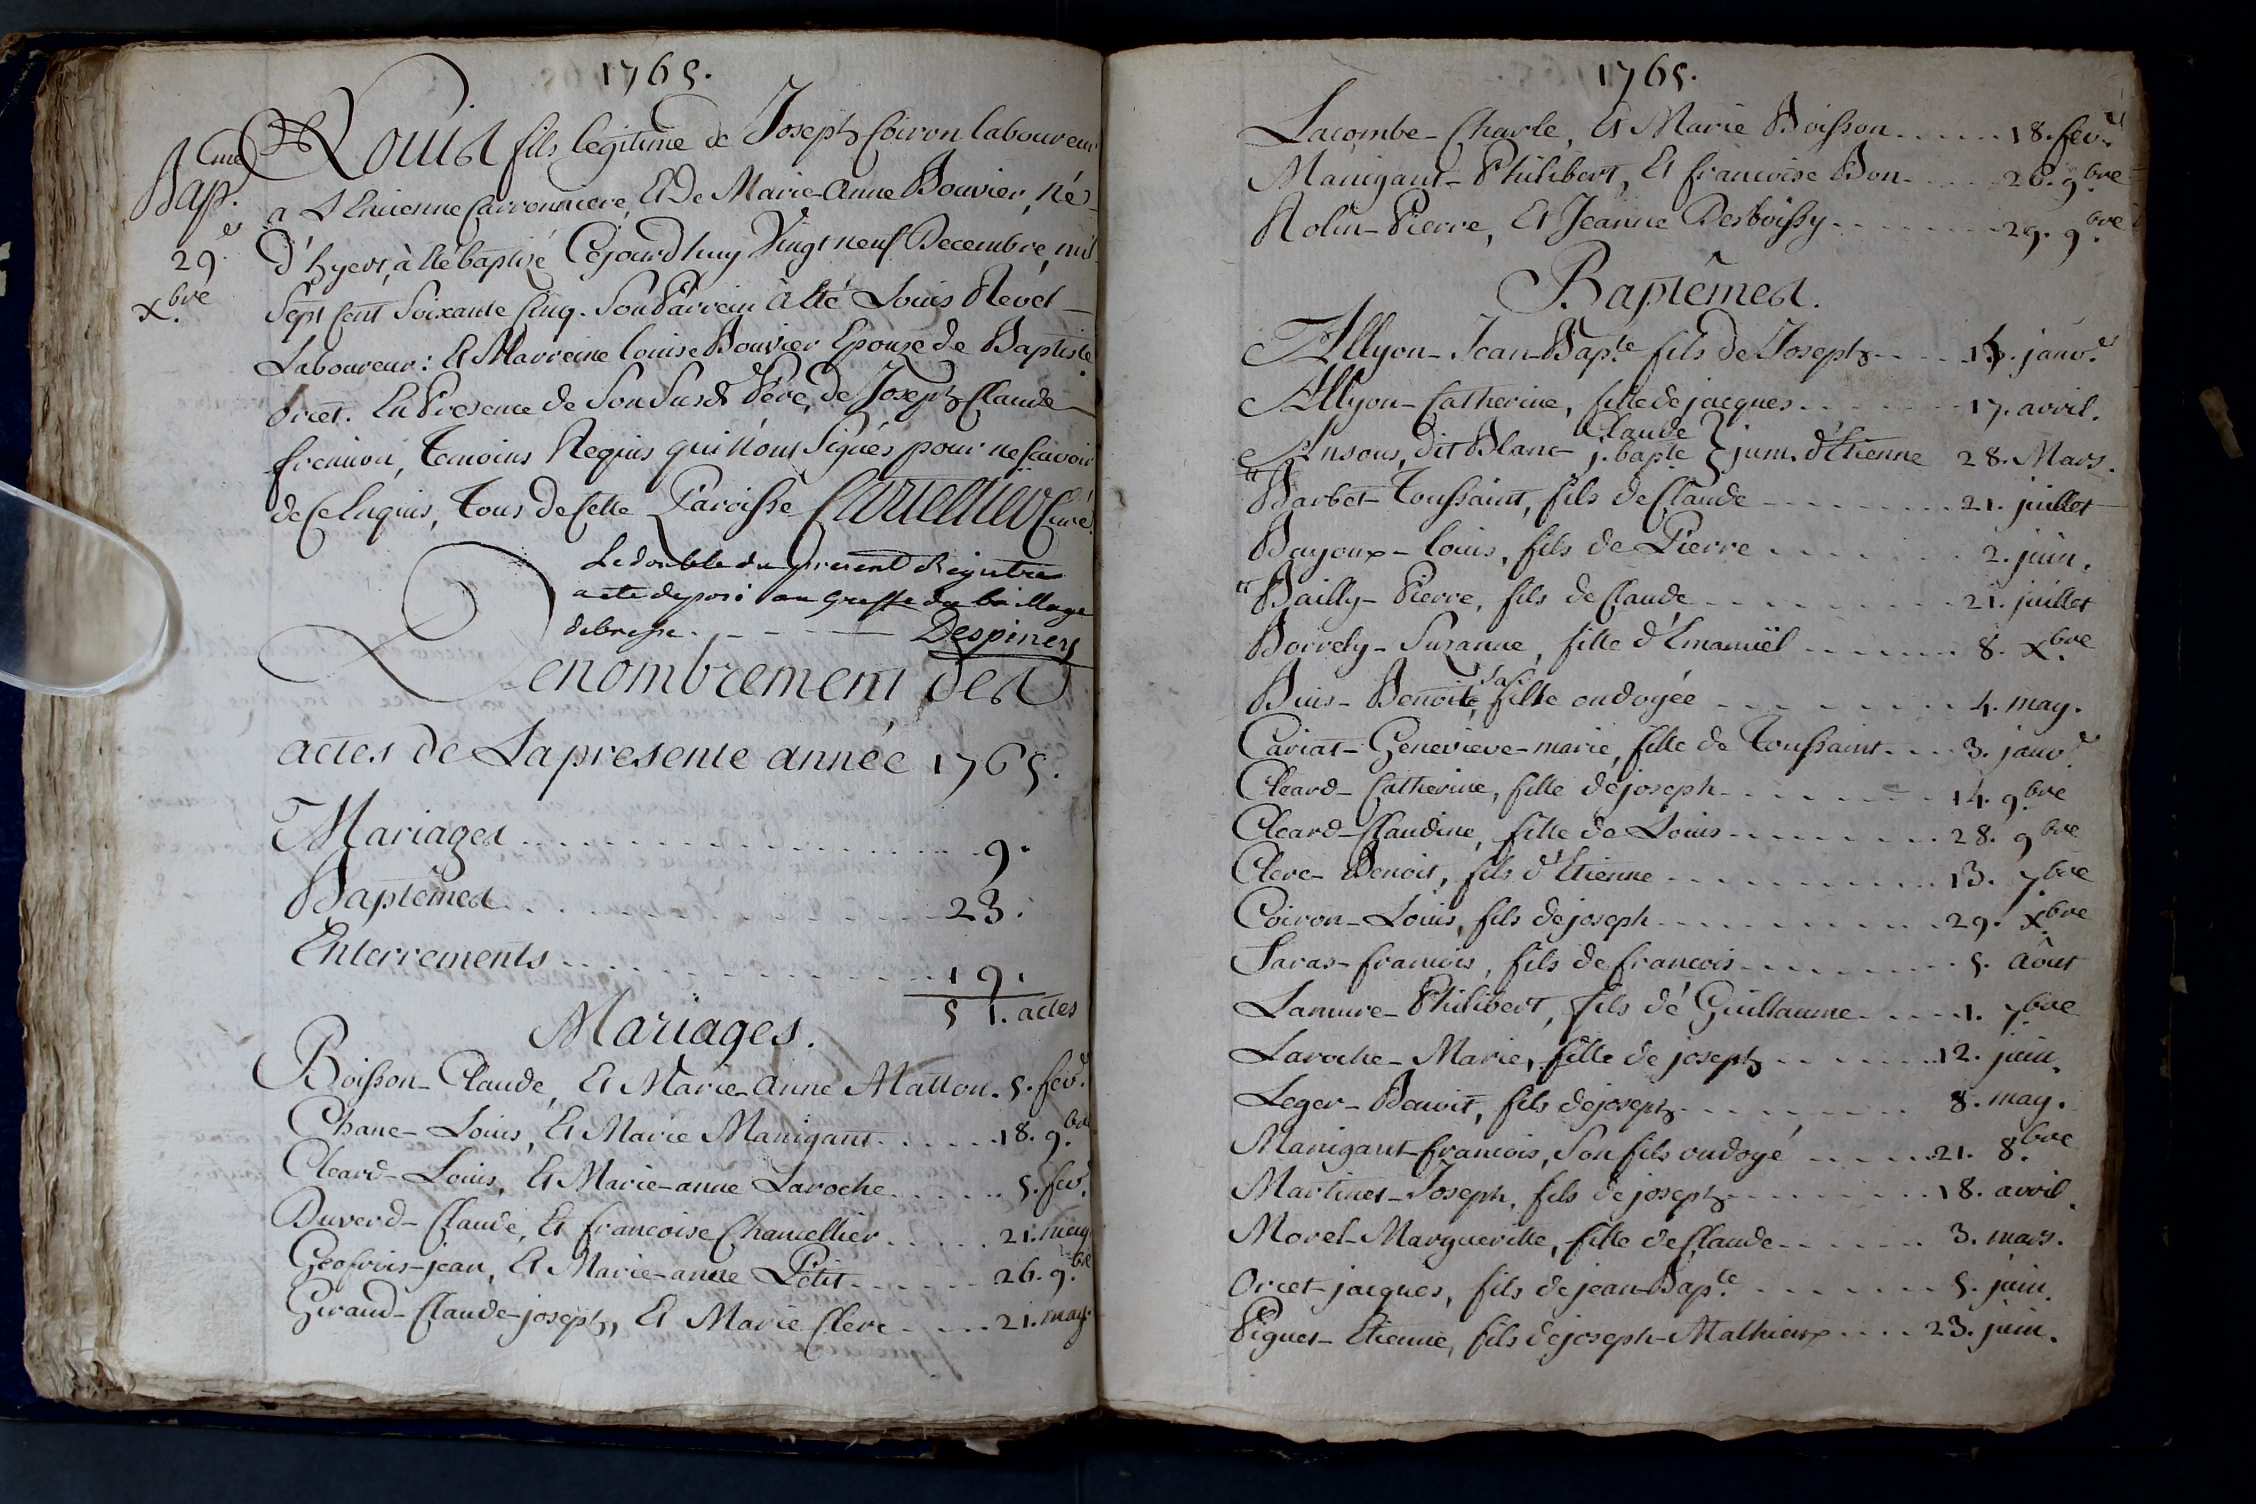 1765.
Bap.^eme
29.
x.^bre
Louis fils legitime de Joseph Coiron laboureur
a L'Encienne Carronniere, Et De Marie-Anne Bouvier, né
d'hyert, à Eté baptisé Cejourdhuy Vingt neuf Decembre, mil
Sept Cent Soixante Cinq. Son Parrein à Eté Louis Revel
Laboureur: Et Marreine louise Bouvier Epouse de Baptiste
Orcet. En Presence de Son Susd.^t Pere, de Joseph Claude
, Temoins Requis qui n'ont Signés pour ne scavoir
de Ce Enquis, Tous de Cette Paroisse Cartellier Curé
Le double du present Registre
a eté deposé au Greffe du bailliage
de bresse. Despiney
Denombrement des
actes de La presente année 1765.
Mariages 9.
Baptêmes 23.
Enterrements 19.
51. actes
Mariages.
Boisson-Claude, Et Marie-Anne Matton. 5. fev.^r
Chane-Louis, Et Marie Manigant 18. 9.^bre
Cleard-Louis, Et Marie-anne Laroche 5. fev.^r
Duverd-Claude, Et francoise Chancellier 21. may
Geofrois-jean, Et Marie-anne Petit 26. 9.^bre
Giraud-Claude-joseph, Et Marie Clerc 21. may.
1765.
Lacombe-Charle, Et Marie Boisson 18. fev.^r
Manigant-Philibert, Et francoise Bon 26. 9.^bre
Rolin-Pierre, Et Jeanne Desboissy 29. 9.^bre
Baptêmes.
Allyon-Jean-Bap.^te fils de Joseph janv.^r
Allyon-Catherine, fille de jacques 17. avril.
Claude
Ansous, dit Blanc-j. bap^te } jum. d'Etienne 28. Mars.
Barbet-Toussaint, fils de Claude 21. juillet
Bayoux-louis, fils de Pierre 2. juin.
Bailly-Pierre, fils de Claude 21. juillet
Borrely-Suzanne, fille d'Emanuël 8. x.^bre
Sa
Buis-Benoite, fille ondoyée 4. may.
Cariat-Genevieve-marie, fille de Toussaint 3. janv.^r
Cleard-Catherine, fille de joseph 14. 9.^bre
Cleard-Claudine, fille de Louis 28. 9^bre
Clerc-Benoit, fils d'Etienne 13. 7.^bre
Coiron-Louis, fils de joseph 29. x.^bre
Jaras-francois, fils de francois 5. Aôut
Lamure-Philibert, fils de Guillaume 1. 7.^bre
Laroche-Marie, fille de joseph 12. juin.
Leger-Benoit, fils de joseph 8. may.
Manigant-francois, Son fils ondoyé 21. 8.^bre
Martinet-Joseph, fils de joseph 18. avril.
Morel-Margueritte, fille de Claude 3. mars.
Orcet-jacques, fils de jean-Bap.^te 5. juin.
Piguet-Etienne, fils de joseph-Mathieux 23. juin.